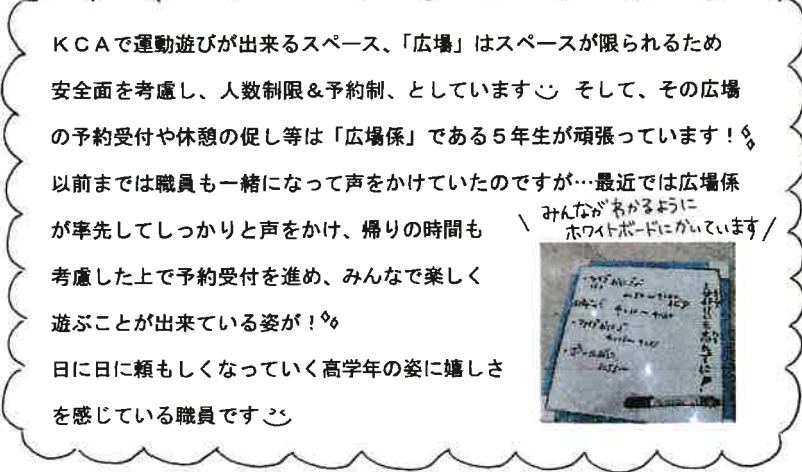 KCAで運動遊びが出来るスペース、「広場」はスペースが限られるため
安全面を考慮し、人数制限&予約制、としています そして、その広場
の予約受付や休憩の促し等は「広場係」である5年生が頑張っています!
以前までは職員も一緒になって声をかけていたのですが…最近では広場係
が率先してしっかりと声をかけ、帰りの時間も
考慮した上で予約受付を進め、みんなで楽しく
遊ぶことが出来ている姿が!
日に日に頼もしくなっていく高学年の姿に嬉しさ
を感じている職員です
\ みんながわかるように
ホワイトボードにかいています /